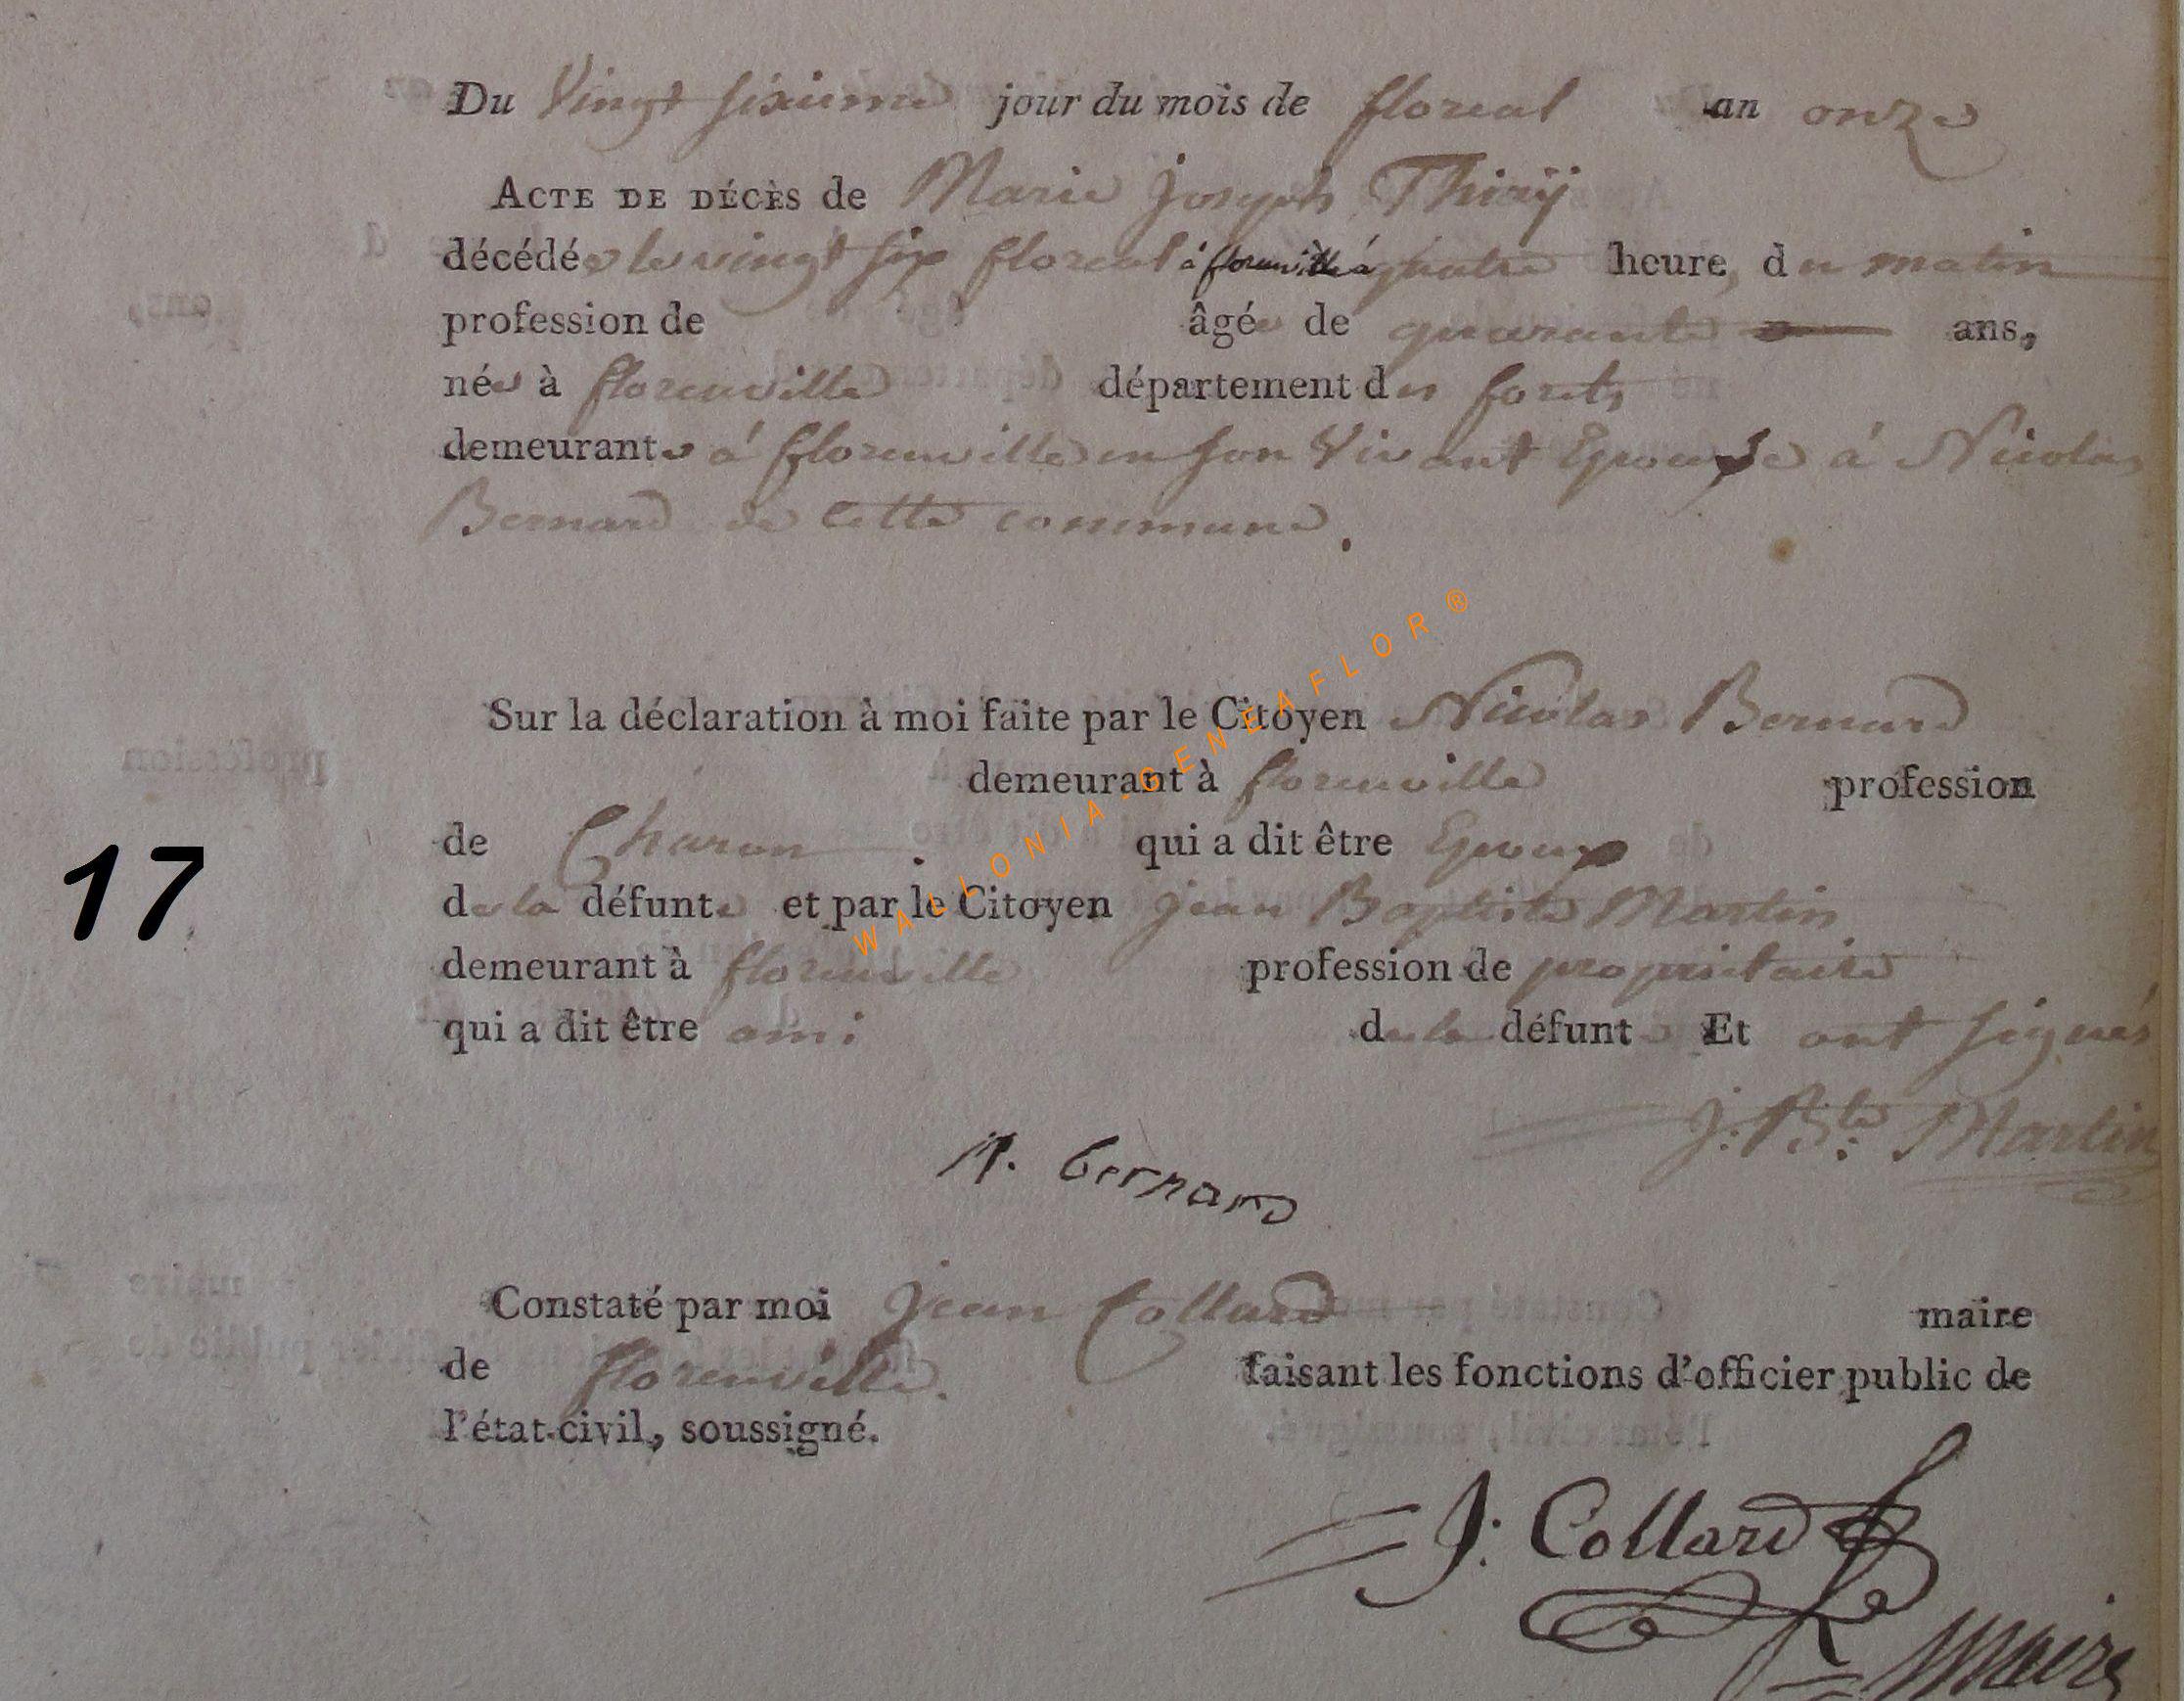 Du Vingt sixieme jour du mois de floreal an onze
ACTE DE DÉCÈS de Marie Joseph Thirÿ
décédée le vingt six floreal à florenville à quatre heure, du matin
profession de âgée de quarante ans,
née à florenville département des forets
demeurante à florenville en son Vivant Epouse à Nicolas
Bernard de cette commune.
Sur la déclaration à moi faite par le Citoyen Nicolas Bernard
demeurant à florenville profession
de Charon qui a dit être Epoux
de la défunte et par le Citoyen jean Baptiste Martin
demeurant à florenville profession de proprietaire
qui a dit être ami de la défunte Et ont signés
J: Bte: Martin
N. bernard
17
Constaté par moi Jean Collard maire
de florenville. faisant les fonctions d'officier public de
l'état civil, soussigné.
J: Collard
Maire
WALLONIA-GENEAFLOR®